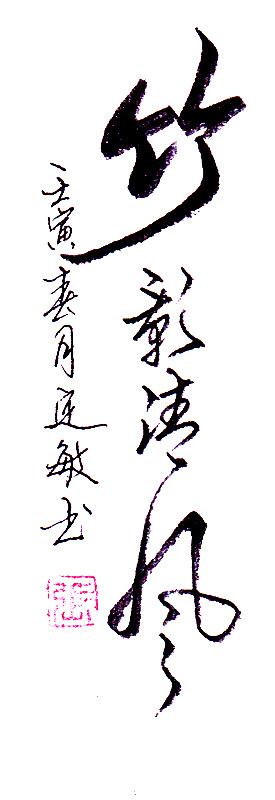 竹影清风
壬寅春月延敏书